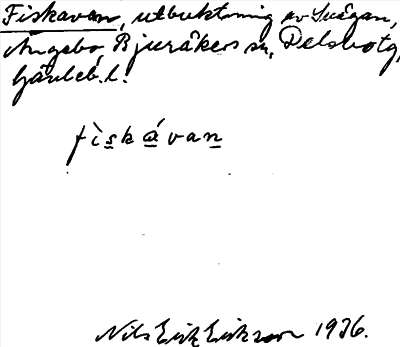 Fiskavan, utbuktning av Svågan,
Ängebo, Bjuråkers sn, Delsbo tg,
Gävleb. l.
fìskávan
Nils Erik Eriksson 1936.